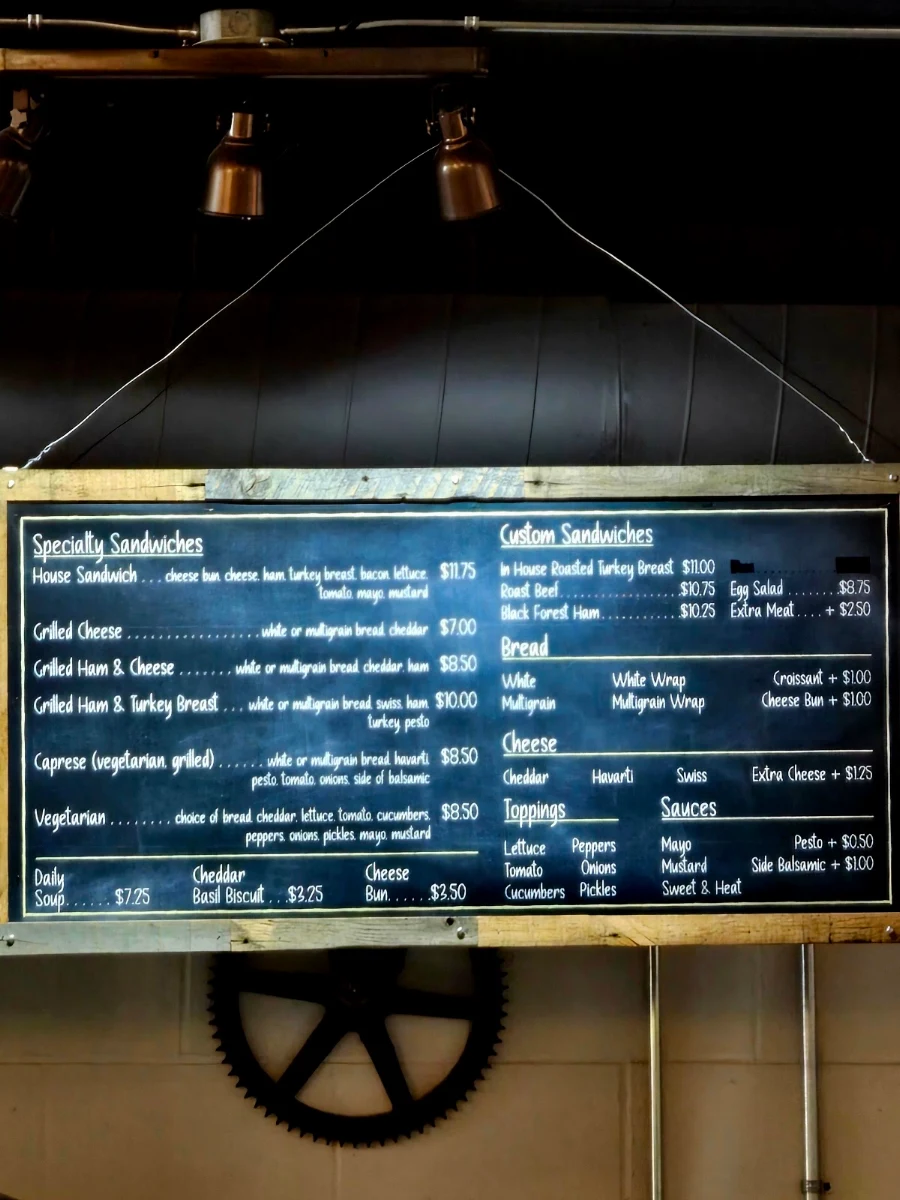 Specialty Sandwiches
House Sandwich . . . cheese bun, cheese, ham, turkey breast, bacon, lettuce, $11.75
tomato, mayo, mustard
Grilled Cheese . . . . . . . . . . . . . . . . . white or multigrain bread, cheddar $7.00
Grilled Ham & Cheese . . . . . . . white or multigrain bread, cheddar, ham $8.50
Grilled Ham & Turkey Breast . . . white or multigrain bread, swiss, ham, $10.00
turkey, pesto
Caprese (vegetarian, grilled) . . . . . . white or multigrain bread, havarti $8.50
pesto, tomato, onions, side of balsamic
Vegetarian . . . . . . . . choice of bread, cheddar, lettuce, tomato, cucumbers, $8.50
peppers, onions, pickles, mayo, mustard
Daily
Soup . . . . . . $7.25
Cheddar
Basil Biscuit . . . $3.25
Cheese
Bun. . . . . . $3.50
Custom Sandwiches
In House Roasted Turkey Breast $11.00
Roast Beef . . . . . . . . . . . . . . . . $10.75 Egg Salad . . . . . . . . $8.75
Black Forest Ham . . . . . . . . . . . $10.25 Extra Meat . . . . . + $2.50
Bread
White White Wrap Croissant + $1.00
Multigrain Multigrain Wrap Cheese Bun + $1.00
Cheese
Cheddar Havarti Swiss Extra Cheese + $1.25
Toppings
Lettuce Peppers
Tomato Onions
Cucumbers Pickles
Sauces
Mayo Pesto + $0.50
Mustard Side Balsamic + $1.00
Sweet & Heat